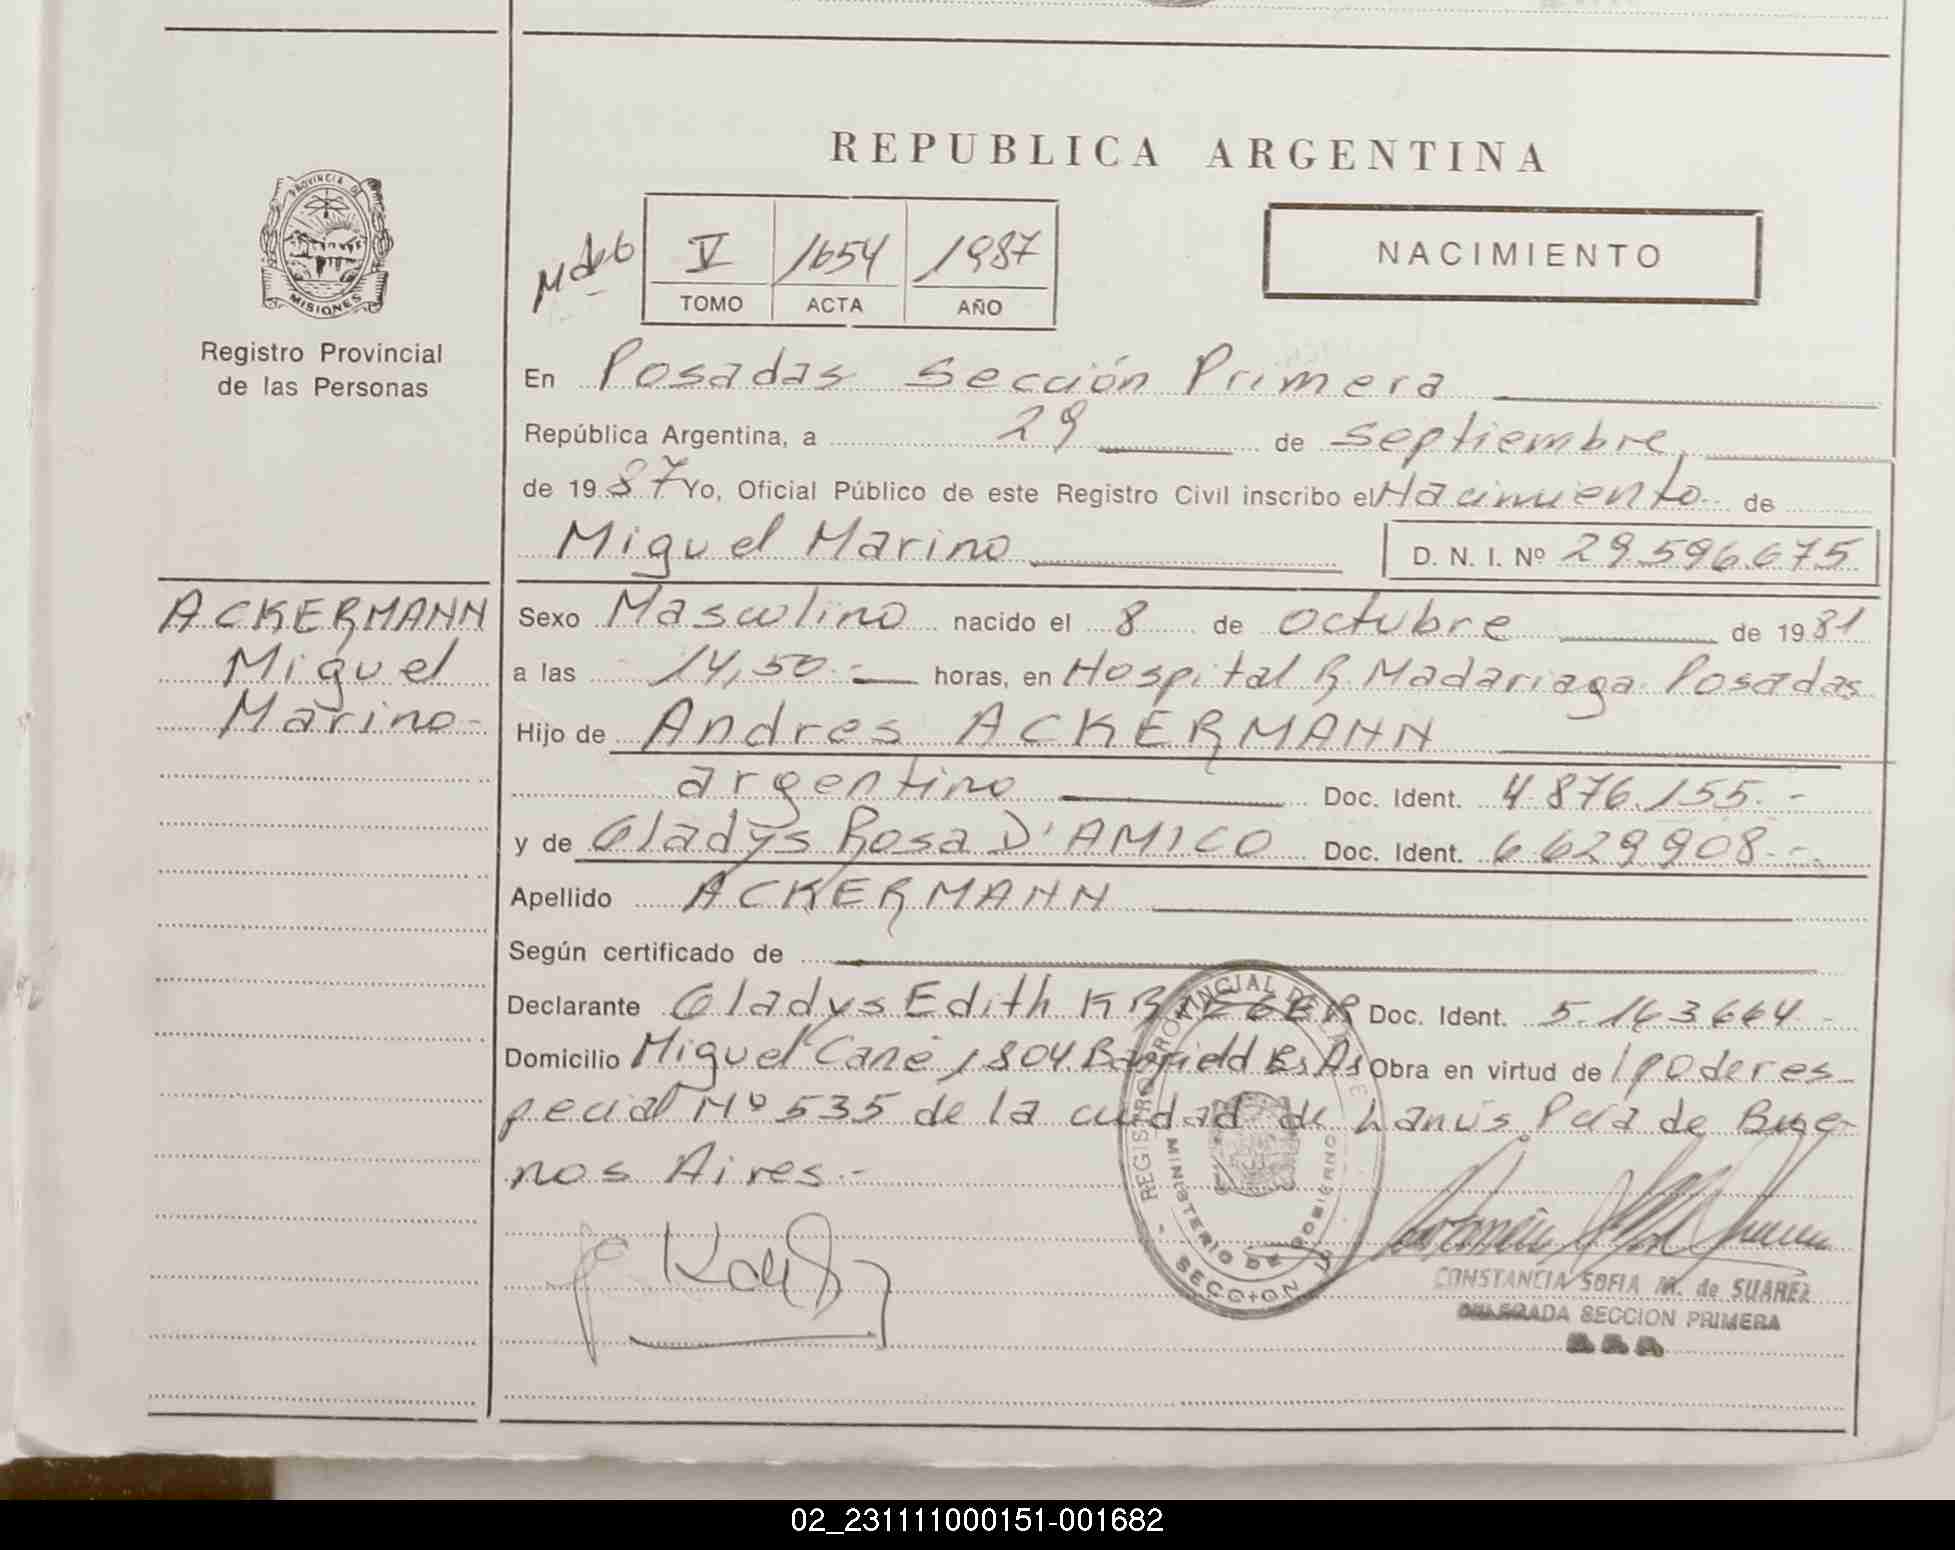 REPUBLICA ARGENTINA
PROVINCIA DE
MISIONES
Registro Provincial
de las Personas
V 1654 1987
TOMO ACTA AÑO
NACIMIENTO
En Posadas Sección Primera
República Argentina, a 29 de septiembre
de 1987 Yo, Oficial Público de este Registro Civil inscribo el Nacimiento de
Miguel Marino D. N. I. Nº 29.596.675
ACKERMANN
Miguel
Marino-
Sexo Masculino nacido el 8 de octubre de 1981
a las 14,50.- horas, en Hospital R. Madariaga Posadas
Hijo de Andres ACKERMANN
argentino Doc. Ident. 4.876.155.-
y de Gladys Rosa D'AMICO Doc. Ident. 6.629.908.-
Apellido ACKERMANN
Según certificado de
Declarante Gladys Edith KRIEGER Doc. Ident. 5.163.664-
Domicilio Miguel Cané 1804 Banfield Bs As Obra en virtud de 1 poder es-
pecial Nº 535 de la ciudad de Lanús Pcia de Bue-
nos Aires.-
REGISTRO PROVINCIAL DE LAS
MINISTERIO DE GOBIERNO
SECCION 1ª
CONSTANCIA SOFIA M. de SUAREZ
DELEGADA SECCION PRIMERA
02_231111000151-001682